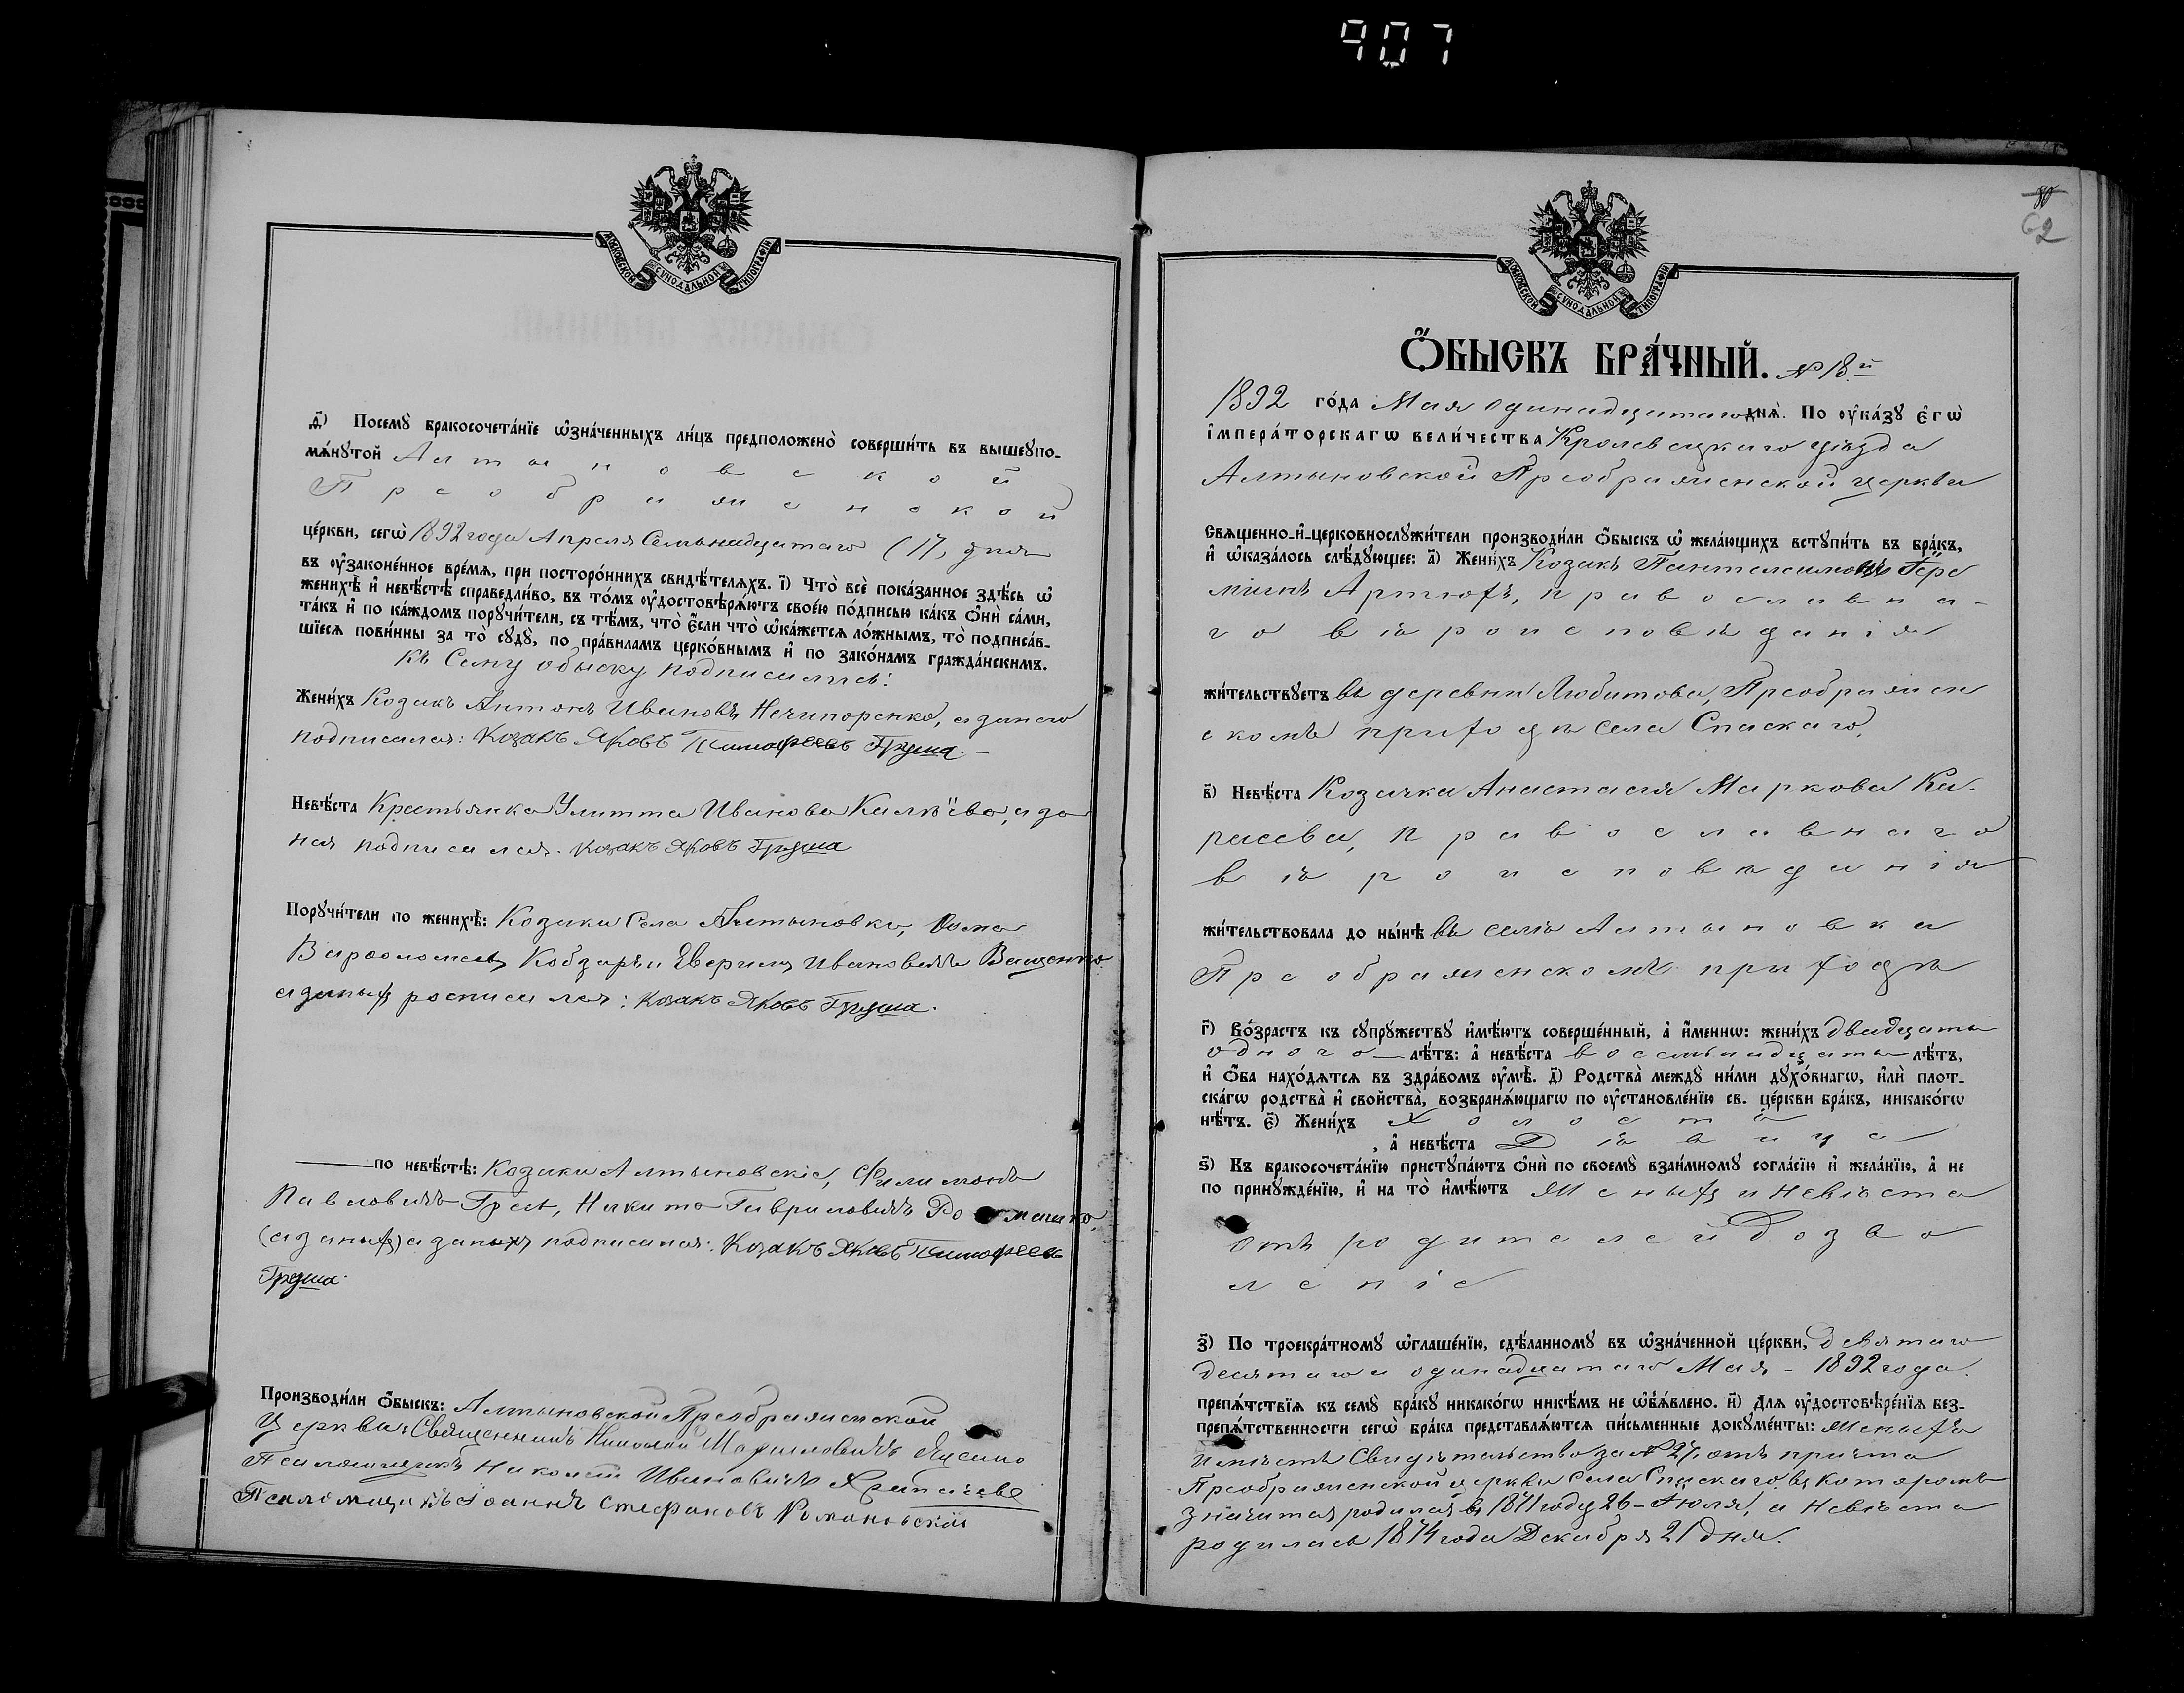 907
МОСКОВСКОЙ СѴНОДАЛЬНОЙ ТИПОГРАФІИ
д҃і) Посемꙋ̀ бракосочета́нїе ѡ҆зна́ченныхъ ли́цъ предположено̀ соверши́ть въ вышеꙋпо-
мѧ́нꙋтой Алтыновской
Преображенской
це́ркви, сегѡ̀ 1892 года Апреля Семьнадцатаго (17) дня
въ ᲂу҆законе́нное вре́мѧ, при посторо́ннихъ свидѣ́телѧхъ. і҃) Что̀ всѐ пока́занное здѣ́сь ѡ҆
женихѣ̀ и҆ невѣ́стѣ справедли́во, въ то́мъ ᲂу҆достовѣрѧ́ютъ свое́ю по́дписью ка́къ ѻ҆нѝ са́ми,
та́къ и҆ по ка́ждомъ порꙋчи́тели, съ тѣ́мъ, что̀ є҆́сли что̀ ѡ҆ка́жетсѧ ло́жнымъ, то̀ подписа́в-
шїесѧ пови́нны за то̀ сꙋдꙋ̀, по пра́виламъ церко́внымъ и҆ по зако́намъ гражда́нскимъ.
Къ Сему обыску подписались:
Жени́хъ Козакъ Антонъ Ивановъ Нечипоренко, а за него
подписался: Козакъ Яковъ Тимофеевъ Груша. —
Невѣ́ста Крестьянка Улитта Иванова, а за
нея подписался. Козакъ Яковъ Груша
Порꙋчи́тели по женихѣ̀: Козаки Села Алтыновки, Ѳома
Варѳоломеевъ Кобзарь и Иванович Ващенко
а за них росписался: Козакъ Яковъ Груша.
по невѣ́стѣ: Козаки Алтыновскіе, Филимонъ
Павловичъ, Никита Гавриловичъ
(а за них) а за них подписался: Козакъ Яковъ Тимофеевъ
Груша.
Производи́ли ѻ҆́быскъ: Алтыновской Преображенской
Церкви: Священникъ Николай
Псаломщикъ Николай Ивановичъ
Псаломщикъ Іоаннъ Стефановъ Романовскій
62
МОСКОВСКОЙ СѴНОДАЛЬНОЙ ТИПОГРАФІИ
Ѻ҆́БЫСКЪ БРА́ЧНЫЙ. № 18й
1892 го́да Мая одинадцатаго днѧ̀. По ᲂу҆ка́зꙋ є҆гѡ̀
і҆мпера́торскагѡ вели́чества Кролевецкаго уѣзда
Алтыновской Преображенской церкви
Свѧще́нно-и҆-церковнослꙋжи́тели производи́ли ѻ҆́быскъ ѡ҆ жела́ющихъ встꙋпи́ть въ бра́къ,
и҆ ѡ҆каза́лось слѣ́дꙋющее: а҃) Жени́хъ Козакъ Пантелеимонъ Іере
міинъ Артюхъ, православна-
го вѣроисповѣданія
жи́тельствꙋетъ въ деревни Любитова, Преображен
скомъ приходѣ села Спаскаго,
в҃) Невѣ́ста Козачка Анастасія Маркова Ка-
расева, православнаго
вѣроисповѣданія
жи́тельствовала до ны́нѣ въ селѣ Алтыновка
Преображенскомъ приходѣ
г҃) Во́зрастъ къ сꙋпрꙋ́жествꙋ и҆мѣ́ютъ соверше́нный, а҆ и҆́меннѡ: жени́хъ двадцать
одного лѣ́тъ: а҆ невѣ́ста восемьнадцать лѣ́тъ,
и҆ ѻ҆́ба нахо́дѧтсѧ въ здра́вомъ ᲂу҆мѣ̀. д҃) Родства̀ междꙋ̀ ни́ми дꙋхо́внагѡ, и҆лѝ плот-
ска́гѡ родства̀ и҆ сво́йства, возбранѧ́ющагѡ по ᲂу҆становле́нїю св. це́ркви бра́къ, никако́гѡ
нѣ́тъ. є҃) Жени́хъ Холостъ
, а҆ невѣ́ста Дѣвица
ѕ҃) Къ бракосочета́нїю пристꙋпа́ютъ ѻ҆нѝ по своемꙋ̀ взаи́мномꙋ согла́сїю и҆ жела́нїю, а҆ не
по принꙋжде́нїю, и҆ на то̀ и҆мѣ́ютъ Женихъ и Невѣста
отъ родителей Дозво
леніе
з҃) По троекра́тномꙋ ѡ҆глаше́нїю, сдѣ́ланномꙋ въ ѡ҆зна́ченной це́ркви, девятаго
десятаго и одинадцатаго Мая - 1892 года.
препѧ́тствїѧ къ семꙋ̀ бра́кꙋ никако́гѡ никѣ́мъ не ѡ҆б̾ѧ́влено. и҃) Длѧ ᲂу҆достовѣре́нїѧ без-
препѧ́тственности сегѡ̀ бра́ка представлѧ́ютсѧ пи́сьменные докꙋме́нты: Женихъ
имѣетъ Свидѣтельство за № 27, отъ причта
Преображенской церкви села Спаскаго, въ которомъ
значится родился въ 1871 году 26 - Іюля, а Невѣста
родилась 1874 года Декабря 21 дня.